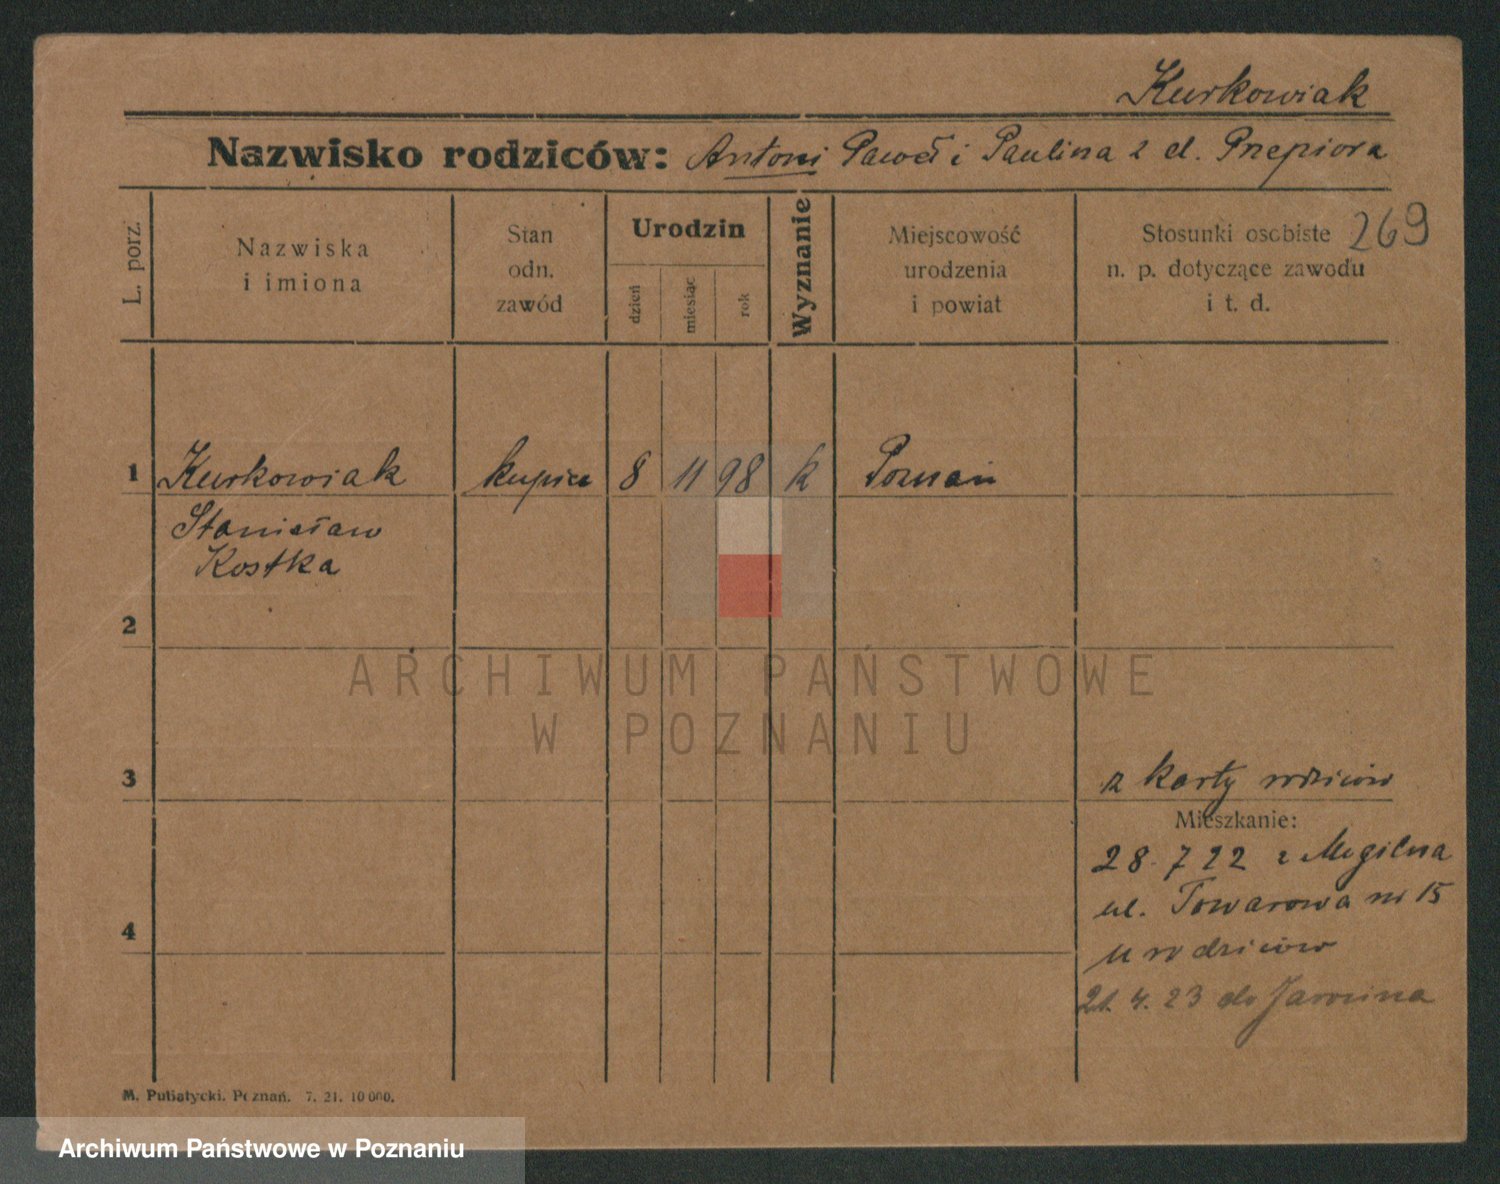 Kurkowiak
Nazwisko rodziców: Antoni Paweł i Paulina z d. Przepiora
269
L. porz.
Nazwiska
i imiona
Stan
odn.
zawód
Urodzin
dzień
miesiąc
rok
Wyznanie
Miejscowość
urodzenia
i powiat
Stosunki osobiste
n. p. dotyczące zawodu
i t. d.
1 Kurkowiak kupiec 8 11 98 k Poznań
Stanisław
Kostka
2
ARCHIWUM PAŃSTWOWE
W POZNANIU
3
z karty rodziców
Mieszkanie:
28. 7 22 z Mogilna
ul. Towarowa nr 15
4
u rodziców
21. 4. 23 do Jarocina
M. Putiatycki. Poznań. 7. 21. 10 000.
Archiwum Państwowe w Poznaniu